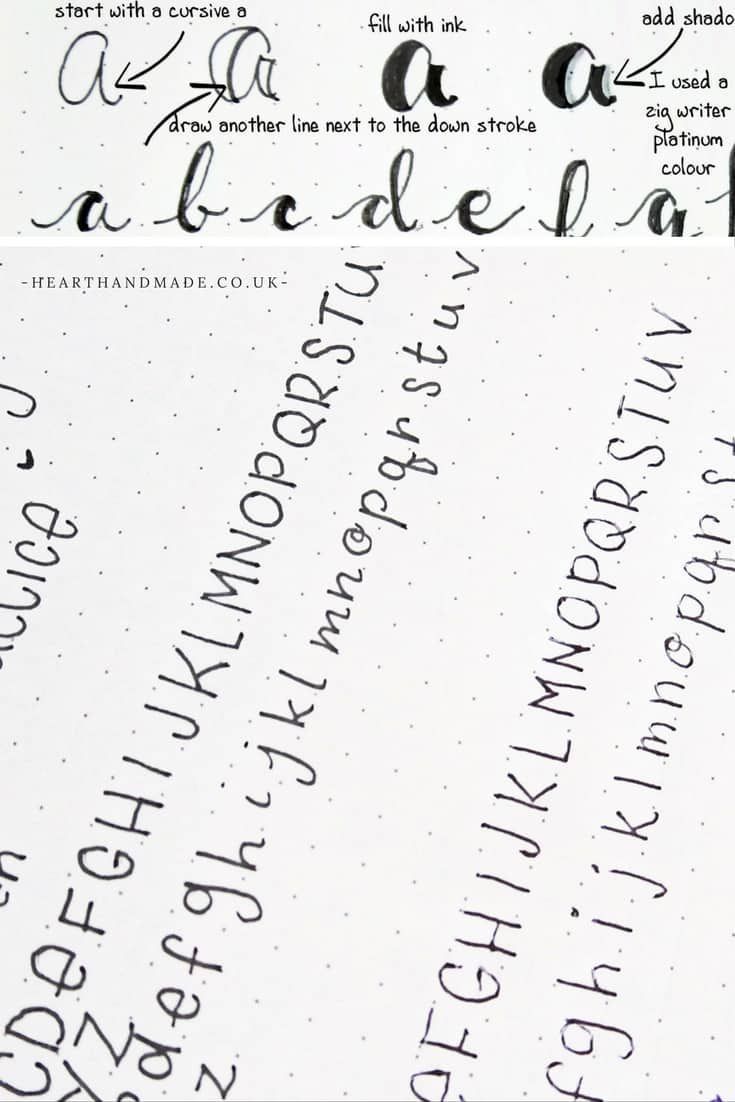 start with a cursive a
fill with ink
add shado
a a a a
I used a
zig writer
platinum
colour
draw another line next to the down stroke
a b c d e f g
-HEARTHANDMADE.CO.UK-
C D e F G H I J K L M N O P Q R S T U
Y Z
d e f g h i j k l m n o p q r s t u v
z
F G H I J K L M N O P Q R S T U V
f g h i j k l m n o p q r s t